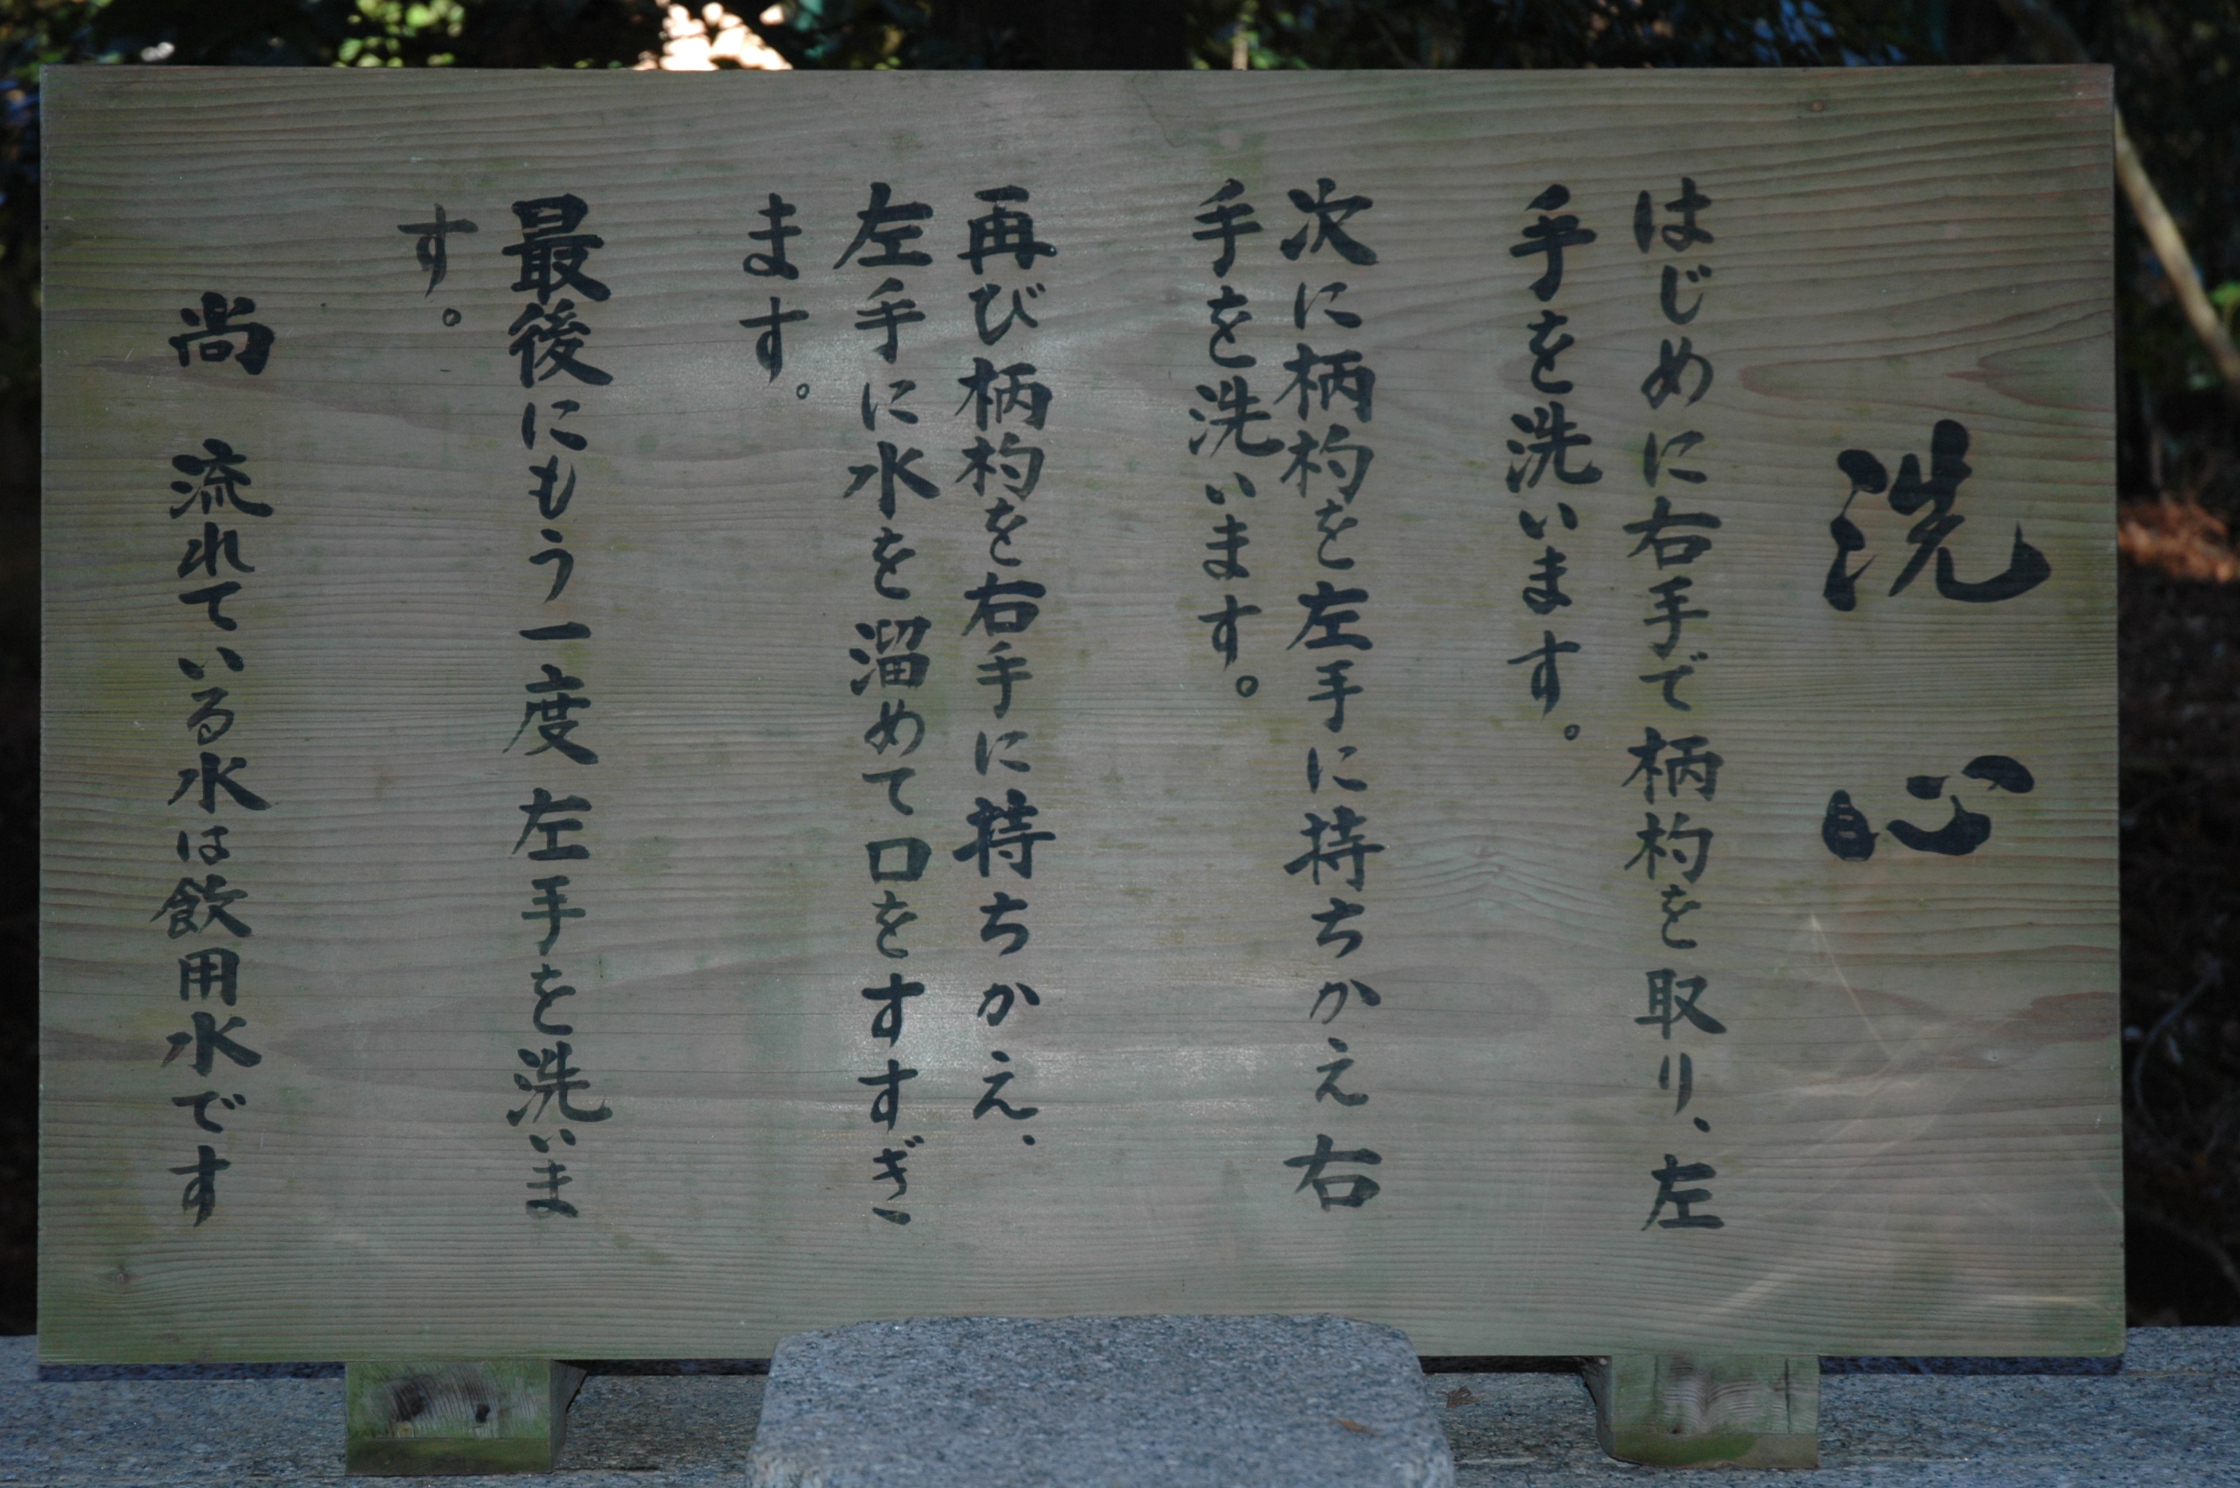 洗心
はじめに右手で柄杓を取り、左
手を洗います。
次に柄杓を左手に持ちかえ右
手を洗います。
再び柄杓を右手に持ちかえ、
左手に水を溜めて口をすすぎ
ます。
最後にもう一度左手を洗いま
す。
尚 流れている水は飲用水です